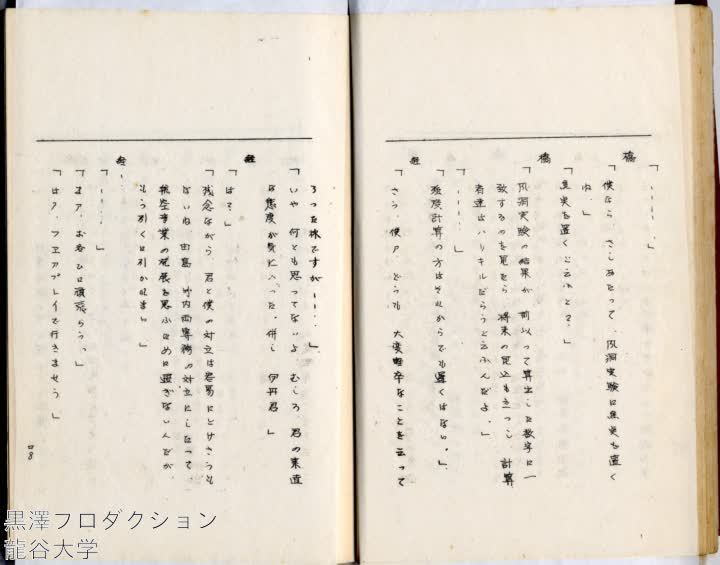 「‥‥‥。」
橋
「僕なら、さしあたって、風洞実験に重点を置く
ね。」
「重点を置くと云ふと?」
橋
「風洞実験の結果が、前以って算出した数字に一
致するのを見たら、将来の見込も立つし、計算
者達はハリキルだらうと云ふんだよ。」
「‥‥‥」
「強度計算の方はそれからでも遅くはない。」
「さう、僕ア、どうも、大変軽卒なことを云って
了った様ですが‥‥‥」
「いや、何とも思ってないよ、むしろ、君の素直
な態度が気に入った、併し、伊丹君」
「は?」
「残念ながら、君と僕の対立は容易にとけさうも
ないね、由島、竹内両専務の対立にしたって、
航空事業の発展を思ふために過ぎないんだが、
もう引くに引かれまい」
「‥‥‥」
「まア、お互ひに頑張らうっ」
「はア、フエアプレイで行きませう」
48
黒澤プロダクション
龍谷大学